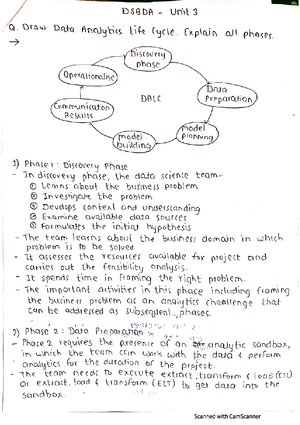 DSBDA - Unit 3
Q. Draw Data Analytics Life Cycle. Explain all phases.
→
Discovery phase
Operationalise
Data Preparation
DALC
Communication Results
model planning
model building
1) Phase 1 : Discovery Phase
- In discovery phase, the data science team-
① Learns about the business problem
② Investigate the problem
③ Devlops context and understanding
④ Examine available data sources
⑤ Formulates the initial hypothesis
- The team learns about the business domain in which
problem is to be solved
- It assesses the resources available for project and
carries out the feasibility analysis.
- It spends time in framing the right problem.
- The important activities in this phase including framing
the business problem as an analytics challenge that
can be addressed as subsequent phases.
2) Phase 2 : Data Preparation
- Phase 2 requires the presence of an analytic sandbox,
in which the team can work with the data & perform
analytics for the duration of the project.
- The team need to execute extract, transform & load (ETL)
or extract, load & transform (ELT) to get data into the
sandbox.
Scanned with CamScanner